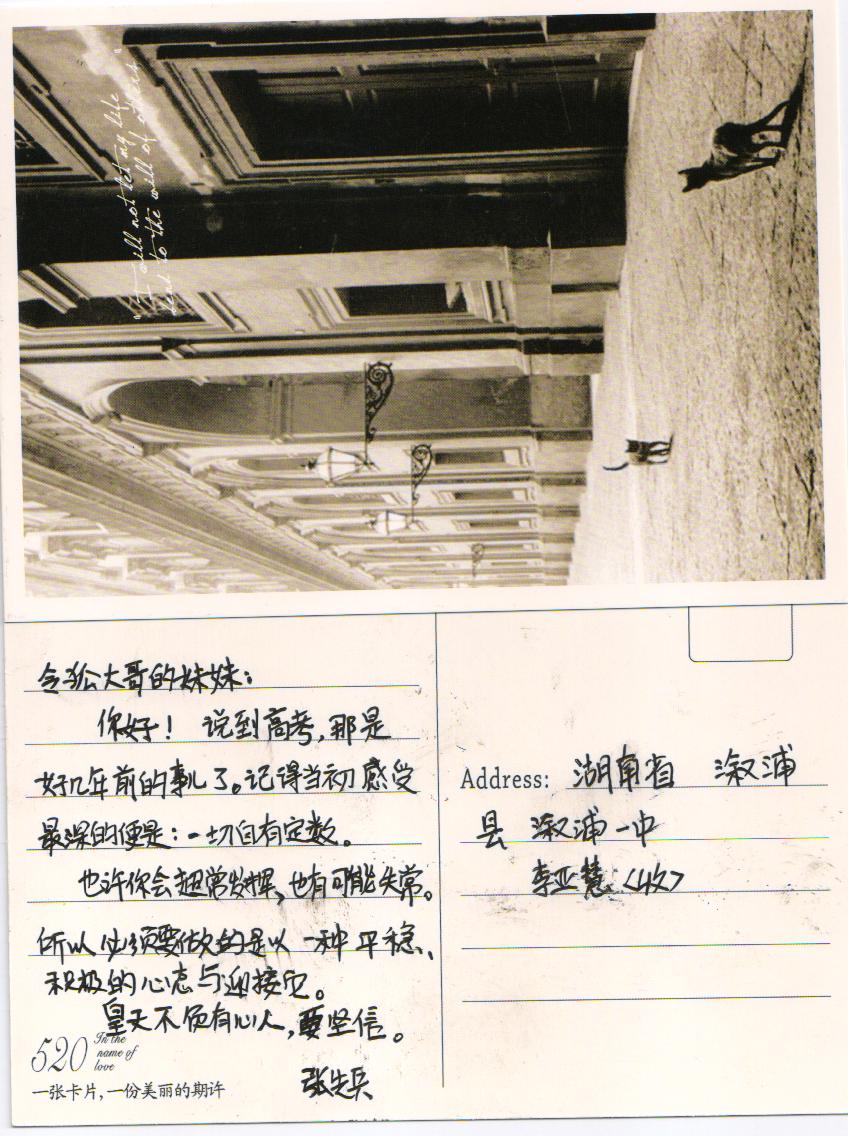 "I will not let my life
bend to the will of others"
令狐大哥的妹妹:
你好! 说到高考,那是
好几年前的事儿了。记得当初感受
最深的便是:一切自有定数。
也许你会超常发挥,也有可能失常。
所以必须要做的是以一种平稳、
积极的心态与迎接它。
皇天不负有心人,要坚信。
张先兵
520 In the
name of
love
一张卡片,一份美丽的期许
Address: 湖南省 溆浦
县 溆浦一中
李亚慧 <收>